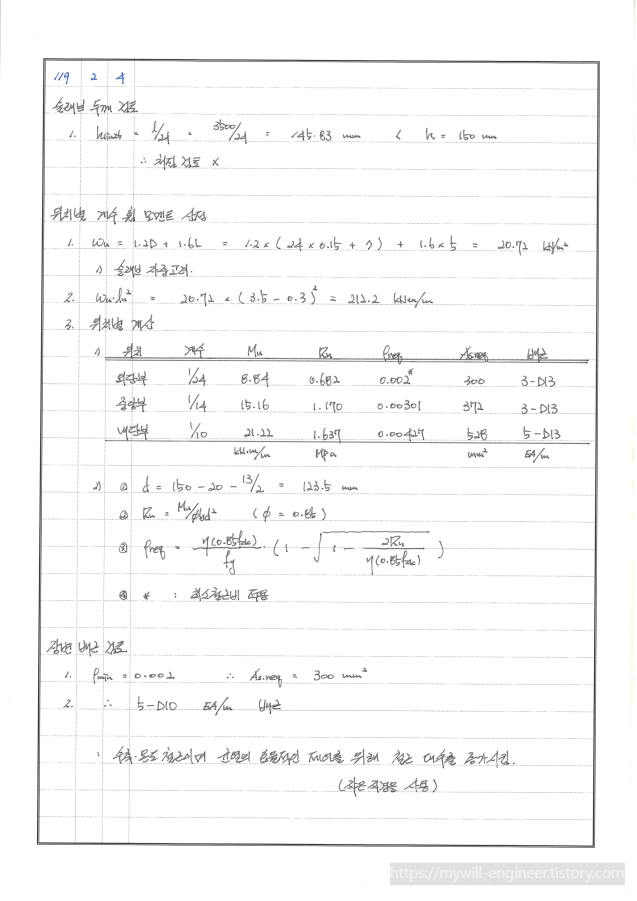 119 2 4
슬래브 두께 검토
1. hmin = l/24 = 3500/24 = 145.83 mm < h = 150 mm
∴ 처짐 검토 X
위치별 계수 휨 모멘트 산정
1. Wu = 1.2D + 1.6L = 1.2 × ( 24 × 0.15 + ) + 1.6 × 5 = 20.72 kN/m²
1) 슬래브 자중고려.
2. Wu·ln² = 20.72 × ( 3.5 - 0.3 )² = 212.2 kN·m/m
3. 위치별 계산
1) 위치 계수 Mu Rn ρreq As.req 배근
외단부 1/24 8.84 0.682 0.002* 300 3-D13
중앙부 1/14 15.16 1.170 0.00301 372 3-D13
내단부 1/10 21.22 1.637 0.00427 528 5-D13
kN·m/m MPa mm² EA/m
2) ① d = 150 - 20 - 13/2 = 123.5 mm
② Rn = Mu/φbd² ( φ = 0.85 )
③ ρreq = η(0.85fck)/fy · ( 1 - √(1 - 2Rn/η(0.85fck)) )
④ * : 최소철근비 적용
장변 배근 검토
1. ρmin = 0.002 ∴ As.req = 300 mm²
2. ∴ 5-D10 EA/m 배근
: 수축·온도 철근이며 균열의 효율적인 제어를 위해 철근 대수를 증가시킴.
(작은 직경을 사용)
https://mywill-engineer.tistory.com